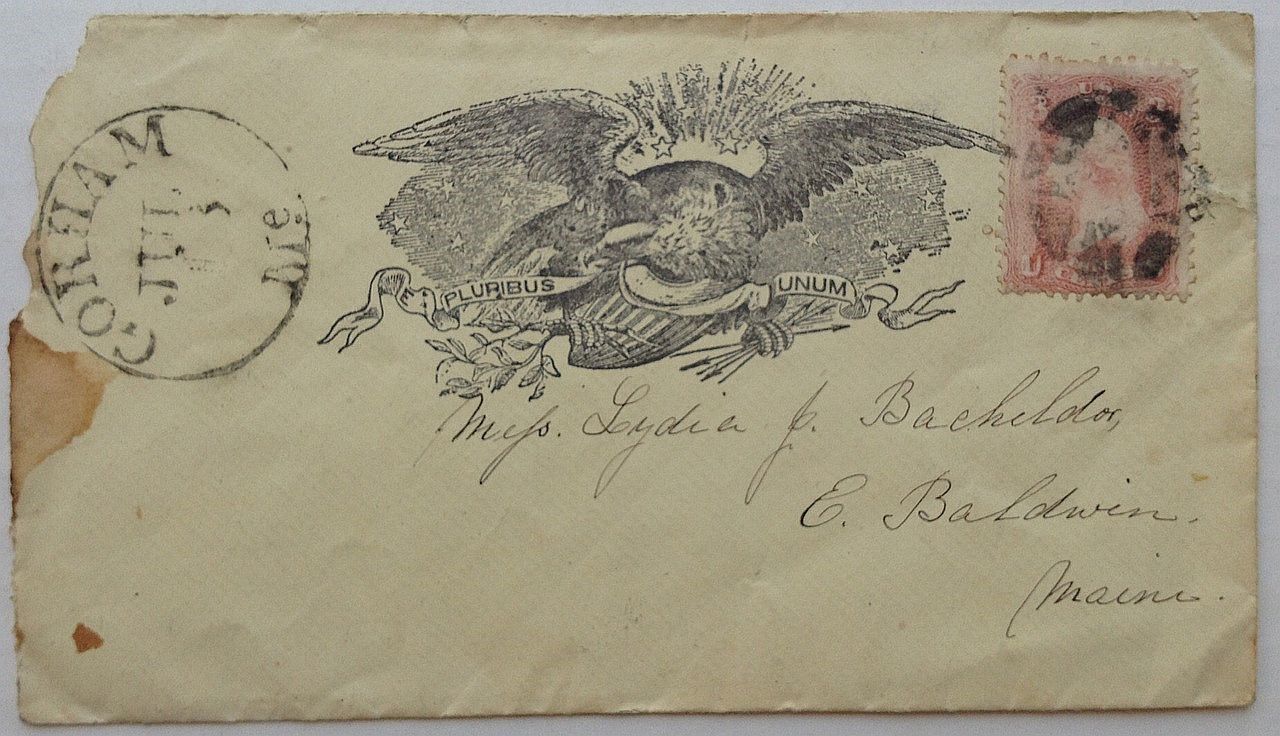 GORHAM
JUL
Me
E PLURIBUS UNUM
U
Miss. Lydia J. Bacheldor,
E. Baldwin.
Maine.